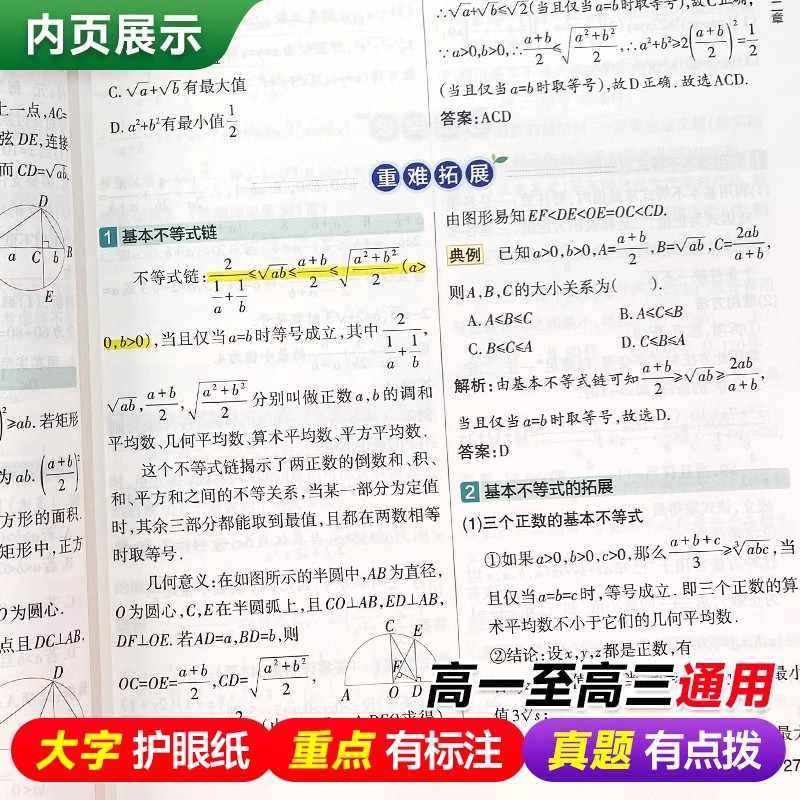 内页展示
C. √a+√b有最大值
D. a²+b²有最小值1/2
∴√a+√b≤√2(当且仅当a=b时取等号),故C正确,
∵a>0,b>0,∴(a+b)/2≤√((a²+b²)/2),∴a²+b²≥2((a+b)/2)²=1/2
(当且仅当a=b时取等号),故D正确.故选ACD.
答案:ACD
二章
上一点,AC=
弦DE,连接
而CD=√ab.
D
a C b B
E
²≥ab.若矩形
为ab.((a+b)/2)²
方形的面积
矩形中,正方
O为圆心.
点且DC⊥AB.
D
重难拓展
1 基本不等式链
不等式链:2/(1/a+1/b)≤√ab≤(a+b)/2≤√((a²+b²)/2)(a>
0,b>0),当且仅当a=b时等号成立,其中2/(1/a+1/b),
√ab,(a+b)/2,√((a²+b²)/2)分别叫做正数a,b的调和
平均数、几何平均数、算术平均数、平方平均数.
这个不等式链揭示了两正数的倒数和、积、
和、平方和之间的不等关系,当某一部分为定值
时,其余三部分都能取到最值,且都在两数相等
时取等号.
几何意义:在如图所示的半圆中,AB为直径,
O为圆心,C,E在半圆弧上,且CO⊥AB,ED⊥AB,
DF⊥OE.若AD=a,BD=b,则
OC=OE=(a+b)/2,CD=√((a²+b²)/2),
C E
F
A O D
由图形易知EF<DE<OE=OC<CD.
典例 已知a>0,b>0,A=(a+b)/2,B=√ab,C=2ab/(a+b),
则A,B,C的大小关系为( ).
A. A≤B≤C B. A≤C≤B
C. B≤C≤A D. C≤B≤A
解析:由基本不等式链可知(a+b)/2≥√ab≥2ab/(a+b),
当且仅当a=b时取等号,故选D.
答案:D
2 基本不等式的拓展
(1)三个正数的基本不等式
①如果a>0,b>0,c>0,那么(a+b+c)/3≥∛abc,当
且仅当a=b=c时,等号成立.即三个正数的算
术平均数不小于它们的几何平均数.
②结论:设x,y,z都是正数,有
最小
值3∛s;
27
高一至高三通用
大字 护眼纸
重点 有标注
真题 有点拨